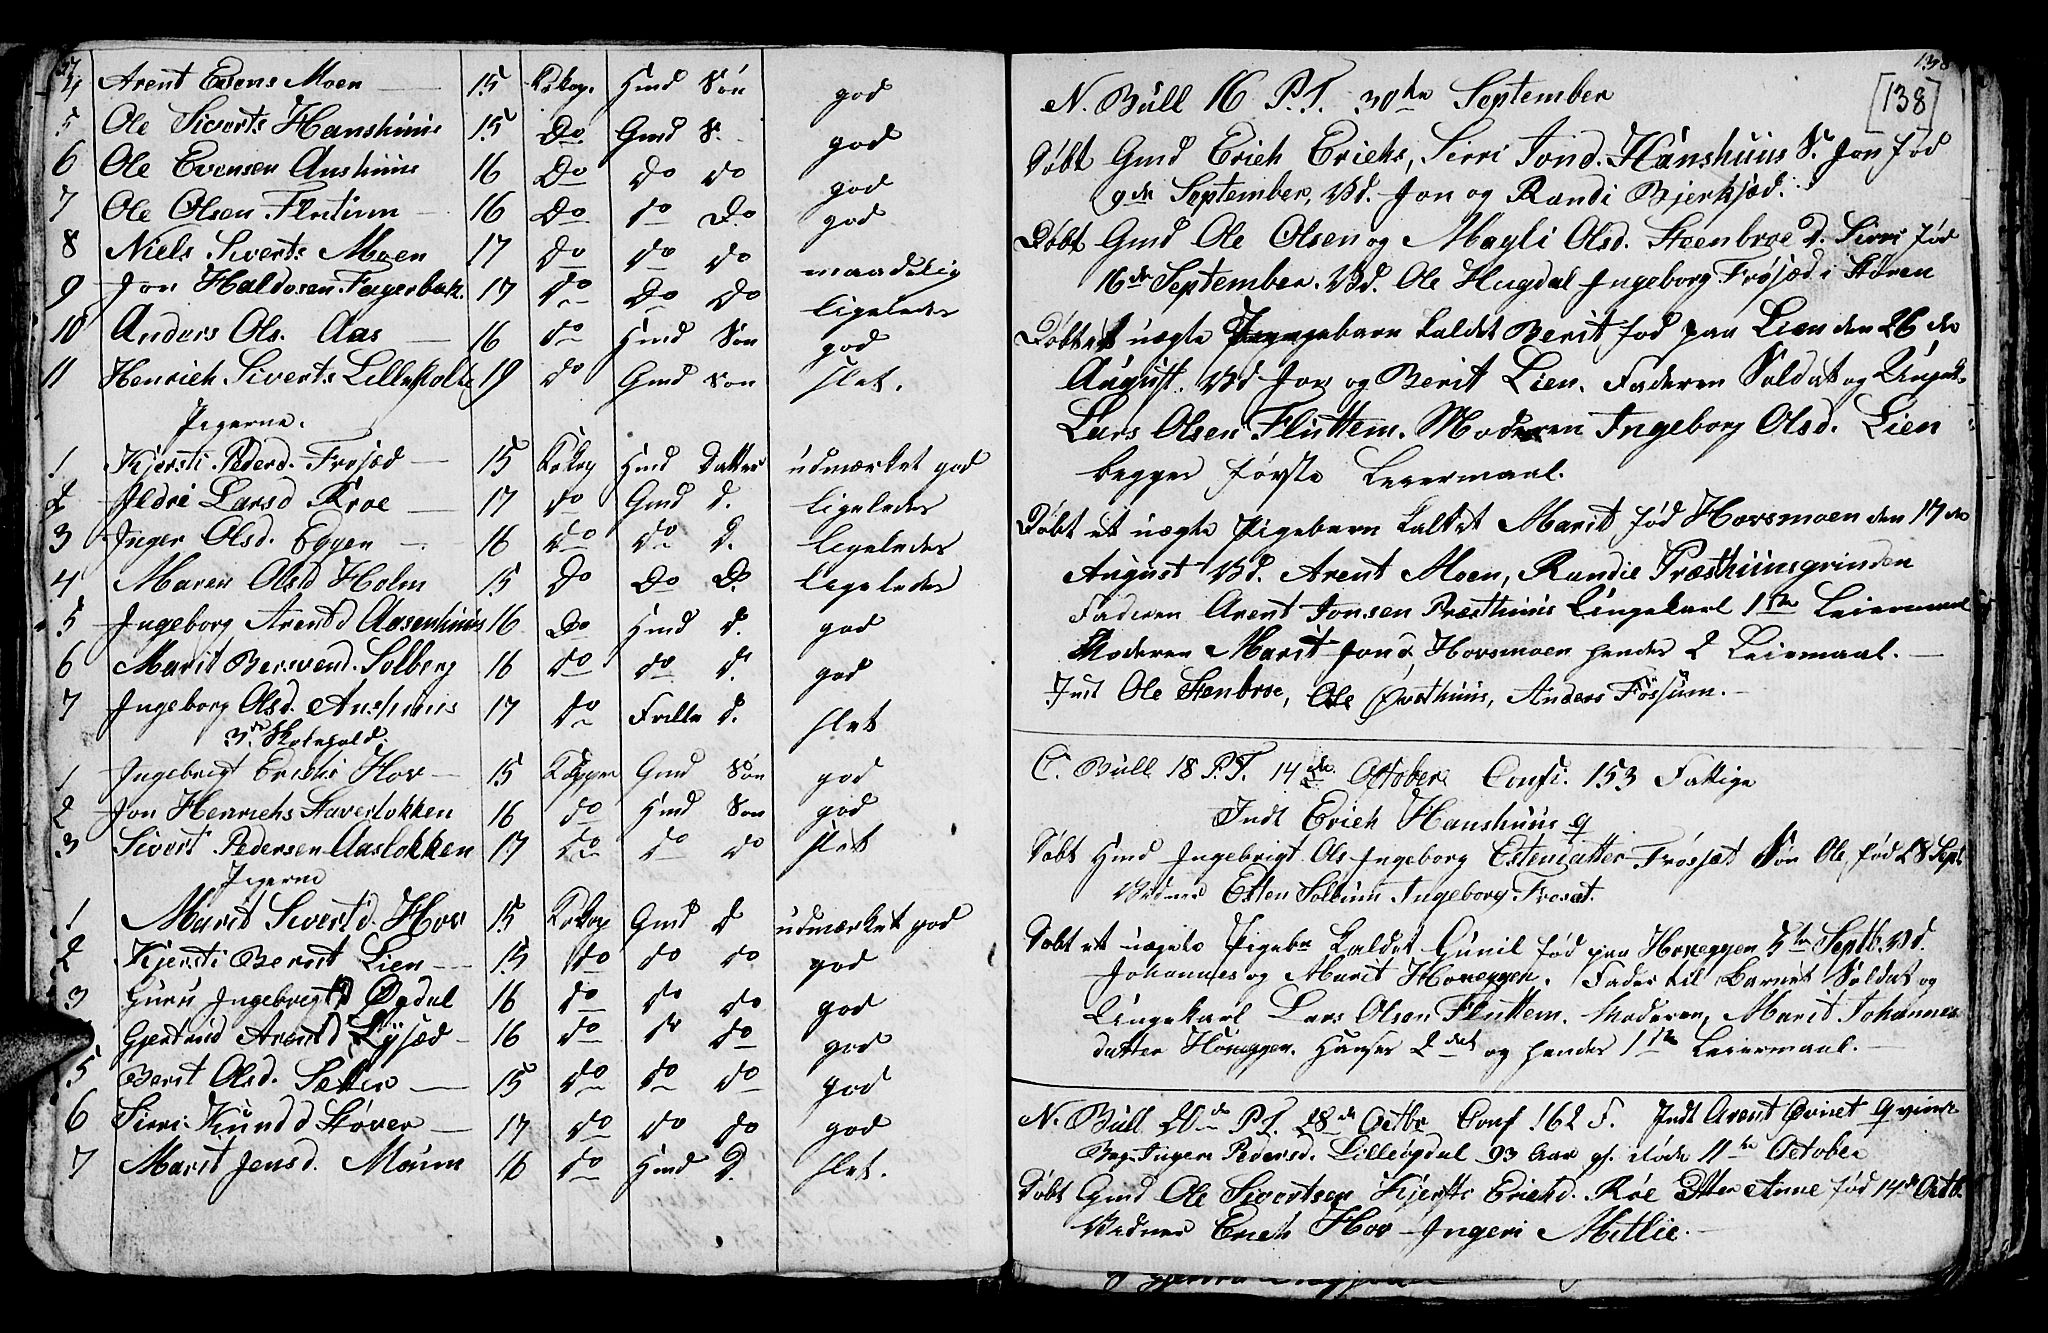 4 Arent Evens Moen 15 Kokop. Hmd Søn god
5 Ole Siverts Hanshuus 15 Do Gmd S. god
6 Ole Evensen Aushuus 16 Do do do god
7 Ole Olsen Flutum 16 Do do Do god
8 Niels Siverts Moen 17 do do do maadelig
9 Jon Haldosen Fagerbak. 17 do Do Do ligeledes
10 Anders Ols. Aas 16 do Hmd Søn god
11 Henrich Siverts Lillekolt 19 do Gmd son slet.
Pigerne.
1 Kjersti Pederd. Frøsæd 15 Kokop Hmd Datter udmærket god
2 Ildri Larsd Kroe 17 do Gmd d. ligeledes
3 Inger Olsd. Eggen 16 do do D. ligeledes
4 Maren Olsd Holm 15 Do Do D. ligeledes
5 Ingeborg Arentd Aasenhuus 16 Do Hmd d. god
6 Marit Bersvend. Solberg 16 do do d. god
7 Ingeborg Olsd. Aushuus 17 do Frille d. slet
3de Skolehold.
1 Ingebrigt Erichs Hov 15 Kopper Gmd Søn god
2 Jon Henrichs Haverlokken 16 do Hmd Søn god
3 Sivert Pedersen Aaslokken 17 do do do slet
Pigerne
1 Marit Sivertd. Hov 15 Kokop Gmd D udmærket god
2 Kjersti Berdt Lien 15 do do do god
3 Guru Ingebrigtd Øgdal 16 do do do god
Gjertrud Arentd Lysæd 16 do do do god
5 Berit Olsd. Sætter 15 do do do god
6 Sirri Knudd Støver 17 do do do god
7 Marit Jensd. Moum 16 do Hmd D. slet.
138
[138]
N. Bull 16 P. T. 30te September
Døbt Gmd Erich Erichs, Sirri Jond. Hanshuus S. Jon fød
9de September, Vd. Jon og Randi Bjerksæd.
Døbt Gmd Ole Olsen og Mayli Olsd. Steenbroe D. Sirri fød
16de September. Vd. Ole Hugdal Ingeborg Frøsæd i Støren
Døbt et uægte Pigebarn kaldet Berit fød paa Lien den 26de
August. Vd Jon og Berit Lien. Faderen Soldat og Ungk.
Lars Olsen Fluttem. Moderen Ingeborg Olsd. Lien
begges første Leiermaal.
Døbt et uægte Pigebarn kaldet Marit fød Horsmoen den 17de
August Vd. Arent Moen, Randie Præsthuusgrinden
Faderen Arent Jonsen Præsthuus Ungekarl 1ste Leiermaal
Moderen Marit Jonsd. Horsmoen hendes 2 Leiermaal.
Indt Ole Stenbroe, Ole Øvsthuus, Anders Fossum.
C. Bull 18 P. T. 14de October. Conf. 153 Fattige
Indt Erich Hanshuus q
Døbt Hmd Ingebrigt Ols Ingeborg Estensdatter Frøsæt Søn Ole fød 28 Sept.
Vidner Esten Solbuum Ingeborg Frosæt.
Døbt et uægte Pigebn kaldet Gunil fød paa Honeggen 5te Septb. Vd.
Johannes og Marit Honeggen. Fader til Barnet Soldat og
Ungekarl Lars Olsen Fluttem. Moderen Marit Johannes
datter Honeggen. Hanses 2det og hendes 1ste Leiermaal.
N. Bull 20de P. T. 28de Octbr Conf 162 F. Indt Arent Qvinet q vinde
Beg. Ingeri Pedersd. Lilleøgdal 93 Aar gl. døde 11te October
Døbt Gmd Ole Sivertsen Kjersti Erichd. Roe Dtter Anne fød 14de Octb.
Vidner Erich Hov Ingeri Mitlie.